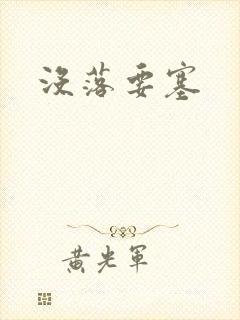 没落要塞
黄光军